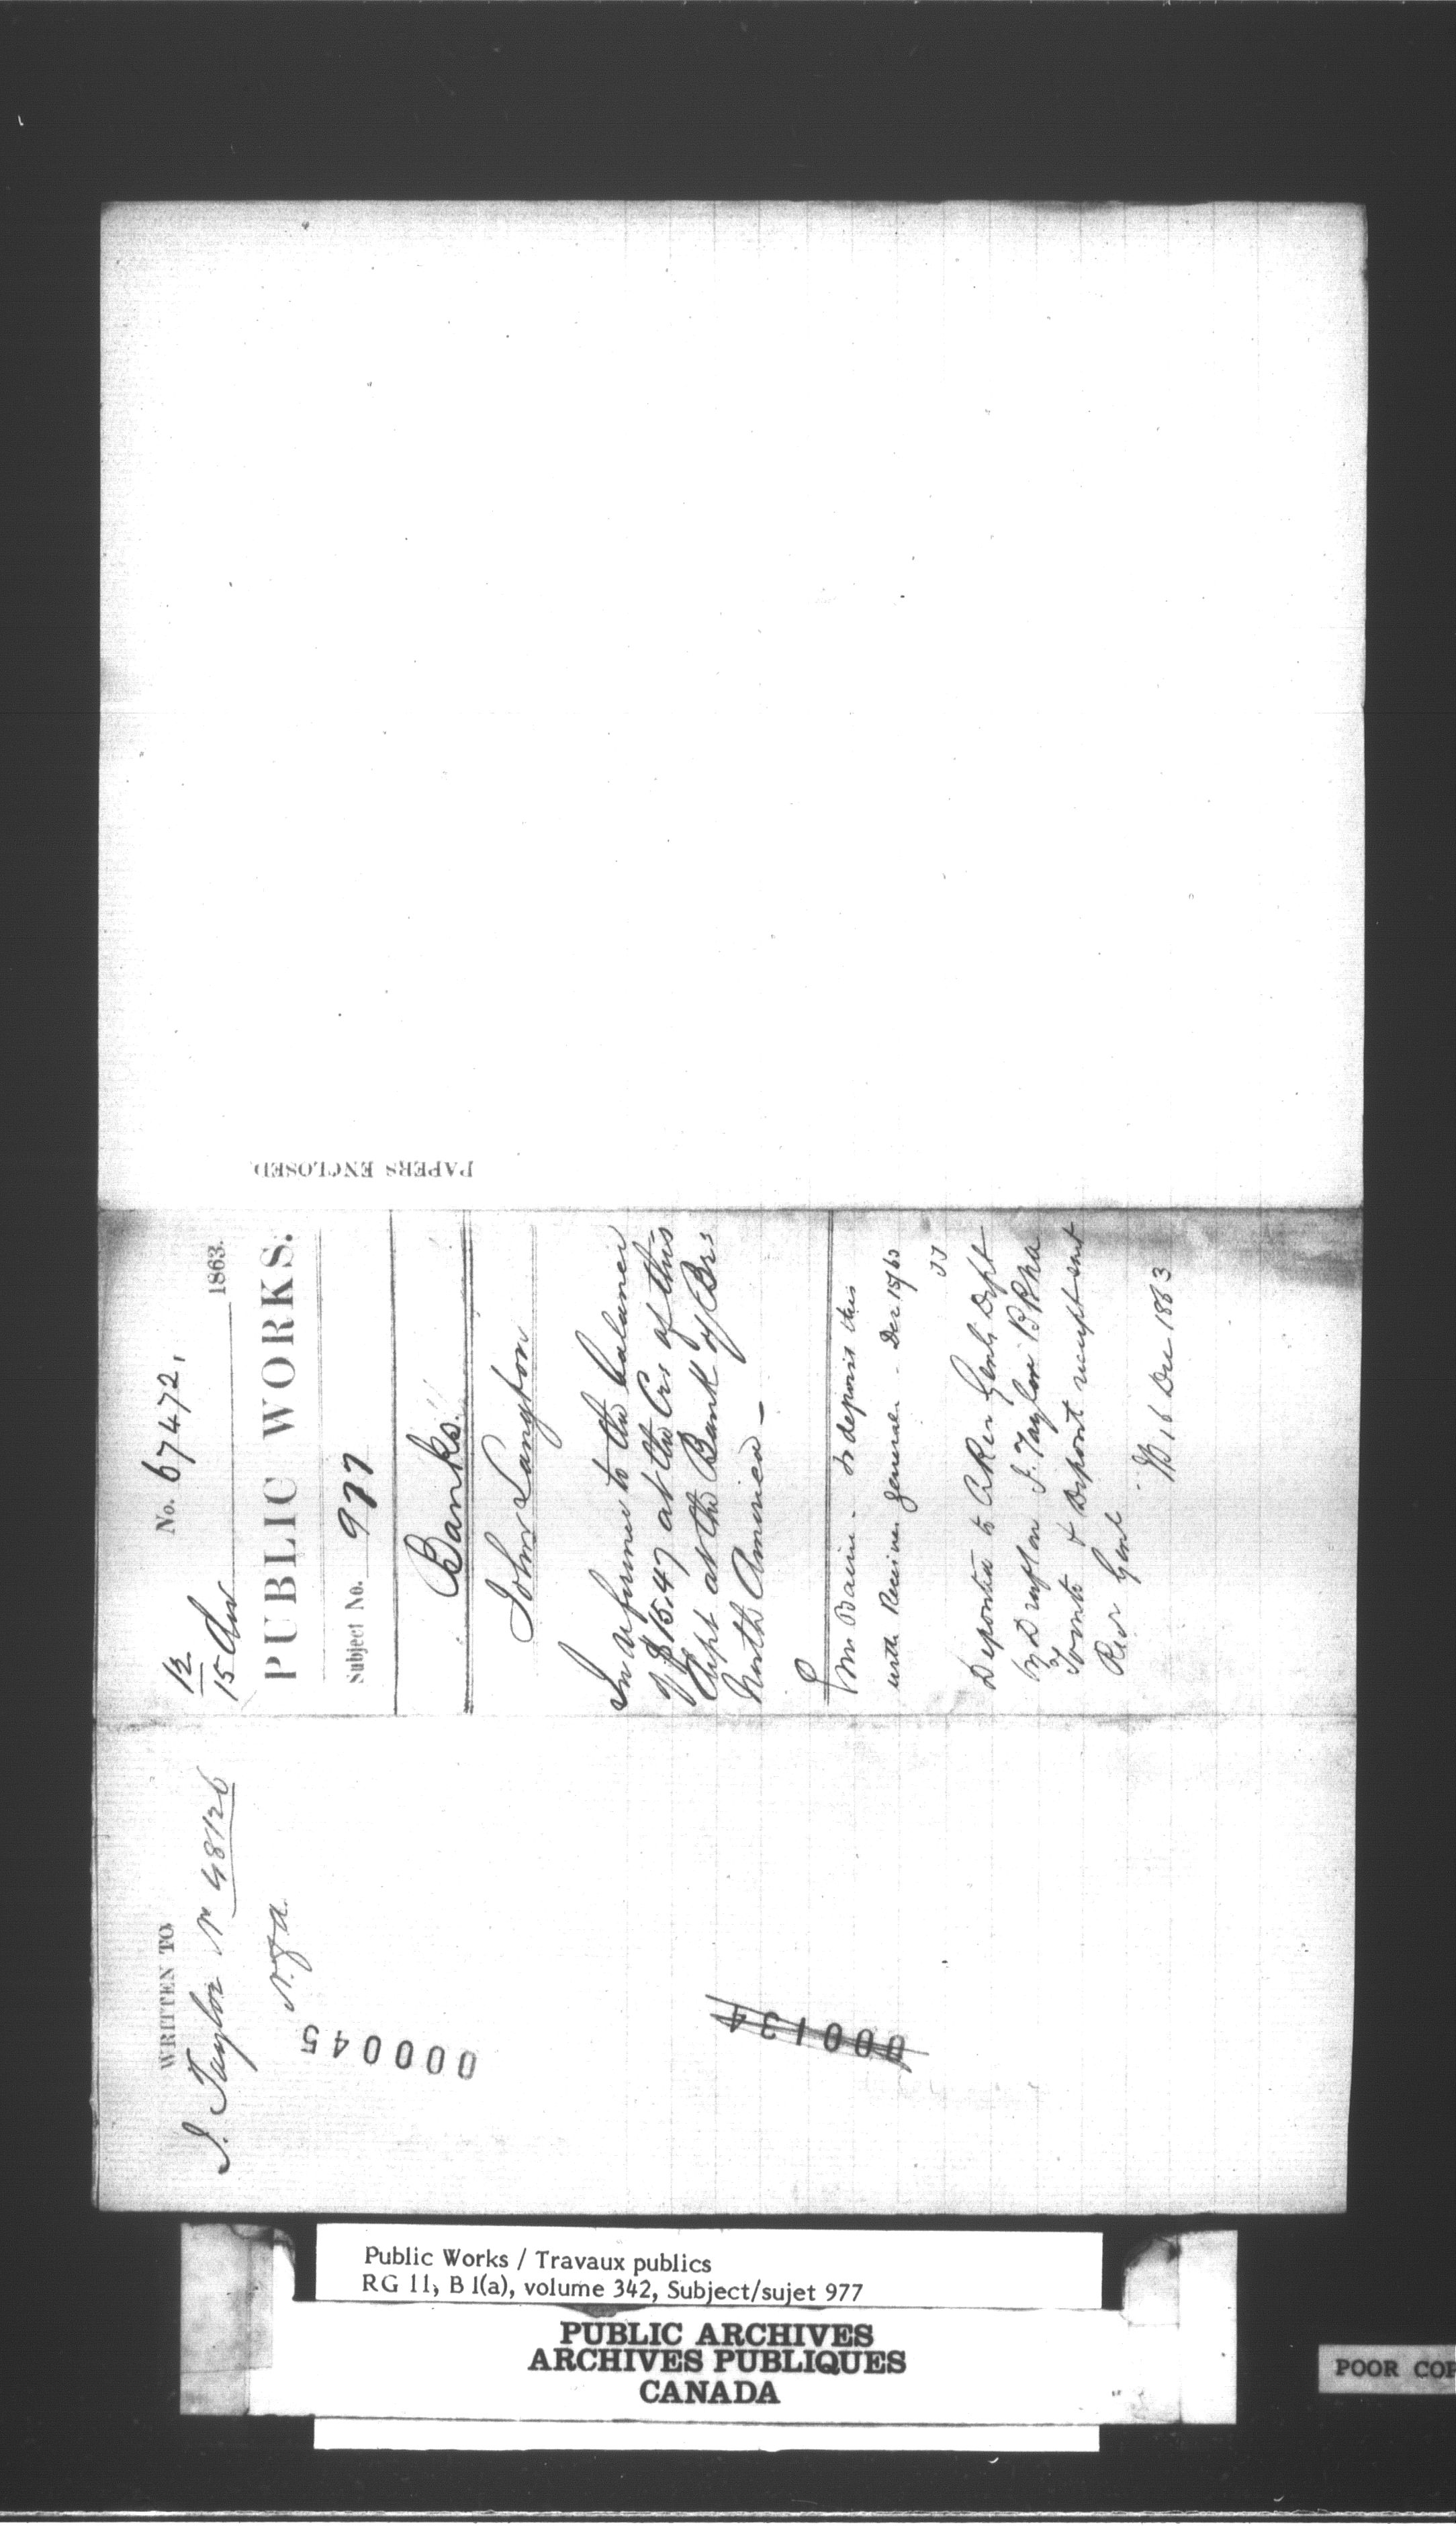 WRITTEN TO
J. Taylor No 48126
N.f.a.
000045
000134
No. 67472,
12
15 Dec 1863.
PUBLIC WORKS.
Subject No. 977
Banks.
John Langton
In reference to the balance
of $15.47 at the Crs of this
Dept at the Bank of Brs
North America —
Mr Baine - to deposit this
with Receiver General - Dec 15/63
JJ
Deposited to Cr Rer Genls Dept
by Draft on J. Taylor B B N A
Toronto & Deposit receipt sent
Recr Genl
16 Dec 1863
PAPERS ENCLOSED.
Public Works / Travaux publics
RG 11, B 1(a), volume 342, Subject/sujet 977
PUBLIC ARCHIVES
ARCHIVES PUBLIQUES
CANADA
POOR COP